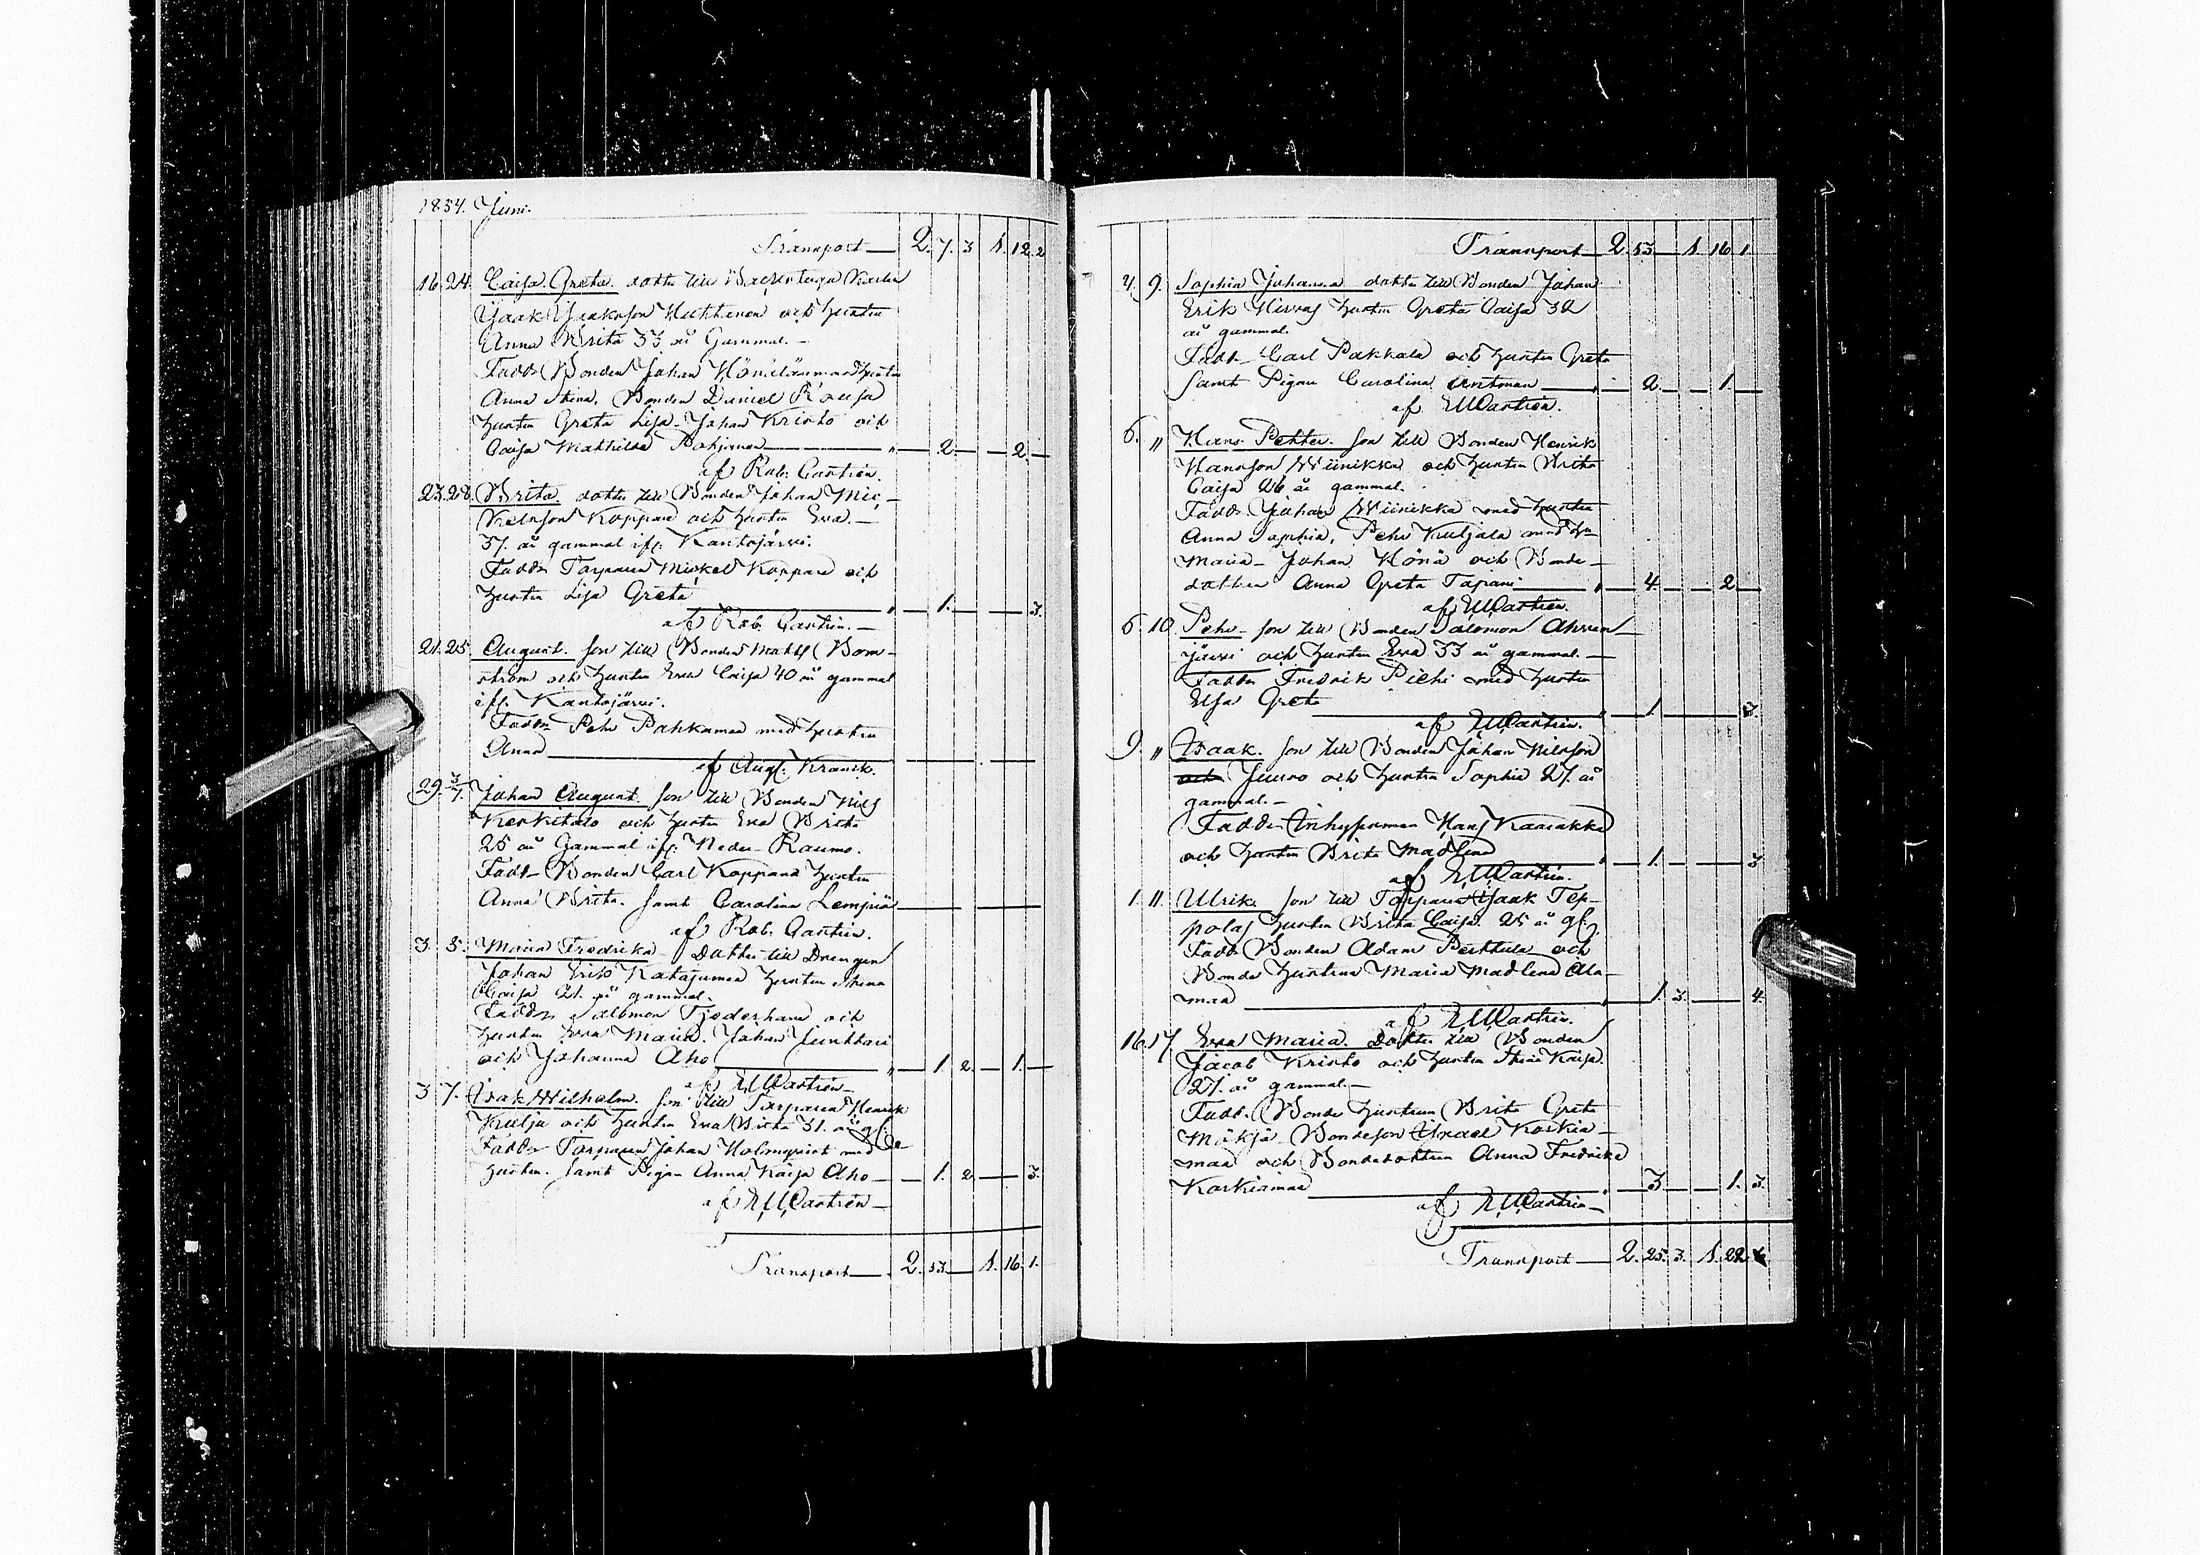 1834. Juni.
Transport 2. 7. 3 1. 12. 2
16. 24. Caisa Greta. dotter till
Isaak Isaksson Huhtanen och hustru
Anna Brita 33 år Gammal.
Fadd. Bonden Johan hustru
Anna Stina, Bonden Daniel
hustru Greta Lisa. Johan Kristo och
Caisa Mathilda 2. 2.
af Rob. Castrén.
23. 28. Brita. dotter till Bonden Johan Mic-
kelsson Koppare och hustru Eva.
37. år gammal ifr. Kantojärvi.
Fadd. Torparen Mickel Koppare och
hustru Lisa Greta 1. 3.
af Rob. Castrén.
21. 25. August. son till Bonden Matts Bom-
ström och hustru Eva Caisa 40 år gammal
ifr. Kantojärvi.
Fadd. Pehr Pahkamaa med hustru
Anna
af Aug. Kranck.
29. 3/7. Johan August. son till Bonden Nils
och hustru Eva Brita
25 år Gammal ifr. Neder-Raumo.
Fadd. Bonden Carl Koppana hustru
Anna Brita. samt Carolina Lempiä
af Rob. Castrén.
3. 5. Maria Fredrika. Dotter till Drengen
Johan Erik Katajamaa hustru Stina
Caisa 21. år gammal.
Fadd. Salomon Tjäderhane och
hustru Eva Maria. Johan Junttari
och Johanna Aho 1. 2. 1.
af E.U.Castrén
3. 7. Isak Wilhelm. son till Torparen Henrik
Kulju och hustru Eva Brita 31. år gl.
Fadd. Torparen Johan Holmqvist med
hustru. samt Pigan Anna Kaisa Aho 1. 2. 3.
af E.U.Castrén
Transport 2. 13. 1. 16. 1.
Transport 2. 13. 1. 16. 1
4. 9. Sophia Johanna dotter till Bonden Johan
Erik hustru Greta Caisa 32
år gammal.
Fadd. Carl Pakkala och hustru Greta
samt Pigan Carolina Antman 2. 1.
af E.U.Castrén.
6. " Hans Petter. son till Bonden Henrik
Hansson Wiinikka och hustru Brita
Caisa 26 år gammal.
Fadd. Johan Wiinikka med hustru
Anna Sophia, Pehr Kuljala med hu
Maria. Johan Hönä och Bonde-
dottren Anna Greta Tapani 4. 2
af E.U.Castrén.
6. 10. Pehr. son till Bonden Salomon Ahven-
järvi och hustru Eva 33 år gammal.
Fadd. Fredrik Pichi med hustru
Elsa Greta 1. 3.
af E.U.Castrén.
9. " Isaak. son till Bonden Johan Nilsson
och Juuso och hustru Sophia 27. år
gammal.
Fadd. Inhysman Hans Kaarakka
och hustru Brita Madlena 1. 3
af E.U.Castrén.
1. 11. Ulrik. son till Torparen Isaak Tep-
polas hustru Brita Caisa. 25 år gl.
Fadd. Bonden Adam Perttula och
Bonde hustrun Maria Madlena Ala-
maa 1. 3. 4.
af E.U.Castrén.
16. 17. Eva Maria. Dotter till Bonden
Jacob Kristo och hustru Stina Kaisa.
27. år gammal.
Fadd. Bonde hustrun Brita Greta
Mäkjä. Bondeson Israel Korkia-
maa och Bondedottren Anna Fredrika
Korkiamaa 3. 1. 3.
af E.U.Castrén
Transport 2. 25. 3. 1. 22.